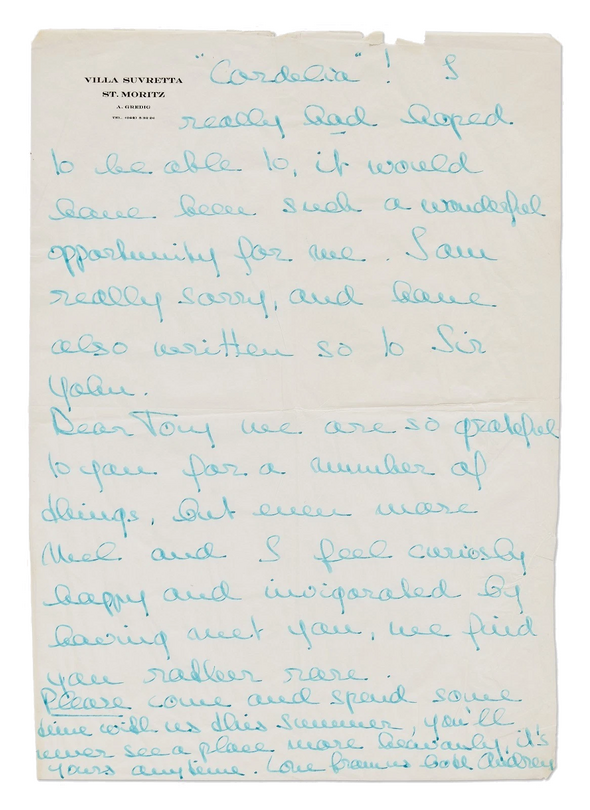 VILLA SUVRETTA
ST. MORITZ
A. GREDIG
"Cordelia"! I
really had hoped
to be able to, it would
have been such a wonderful
opportunity for me. I am
really sorry, and have
also written so to Sir
John.
Dear Tony we are so grateful
to you for a number of
things, but even more
Mel and I feel curiosly
happy and invigorated by
having met you, we find
you rather rare.
Please come and spend some
time with us this summer, you'll
never see a place more heavenly, it's
yours anytime. Love from us both Audrey